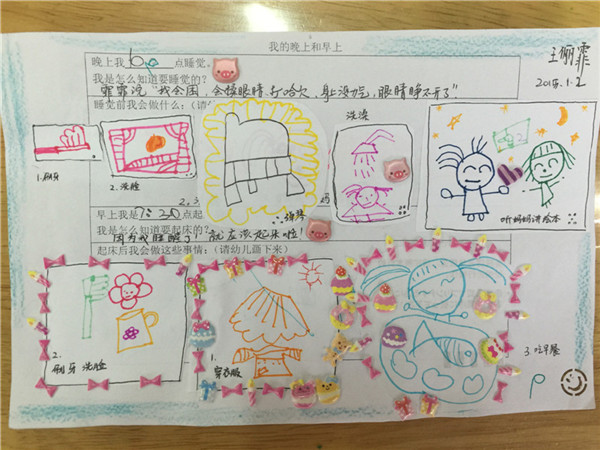 我的晚上和早上
王俪霏
2015.1.2
晚上我 点睡觉。
我是怎么知道要睡觉的?
霏霏说"我会困,会揉眼睛,打哈欠,身上没力气,眼睛睁不开了"
睡觉前我会做什么:(请
洗澡
1.刷牙
2.洗脸
弹琴
听妈妈讲绘本
早上我是7:30点起
我是怎么知道要起床的?
因为我睡醒了 就应该起床啦!
起床后我会做这些事情:(请幼儿画下来)
2.
刷牙 洗脸
1.
穿衣服
3.吃早餐